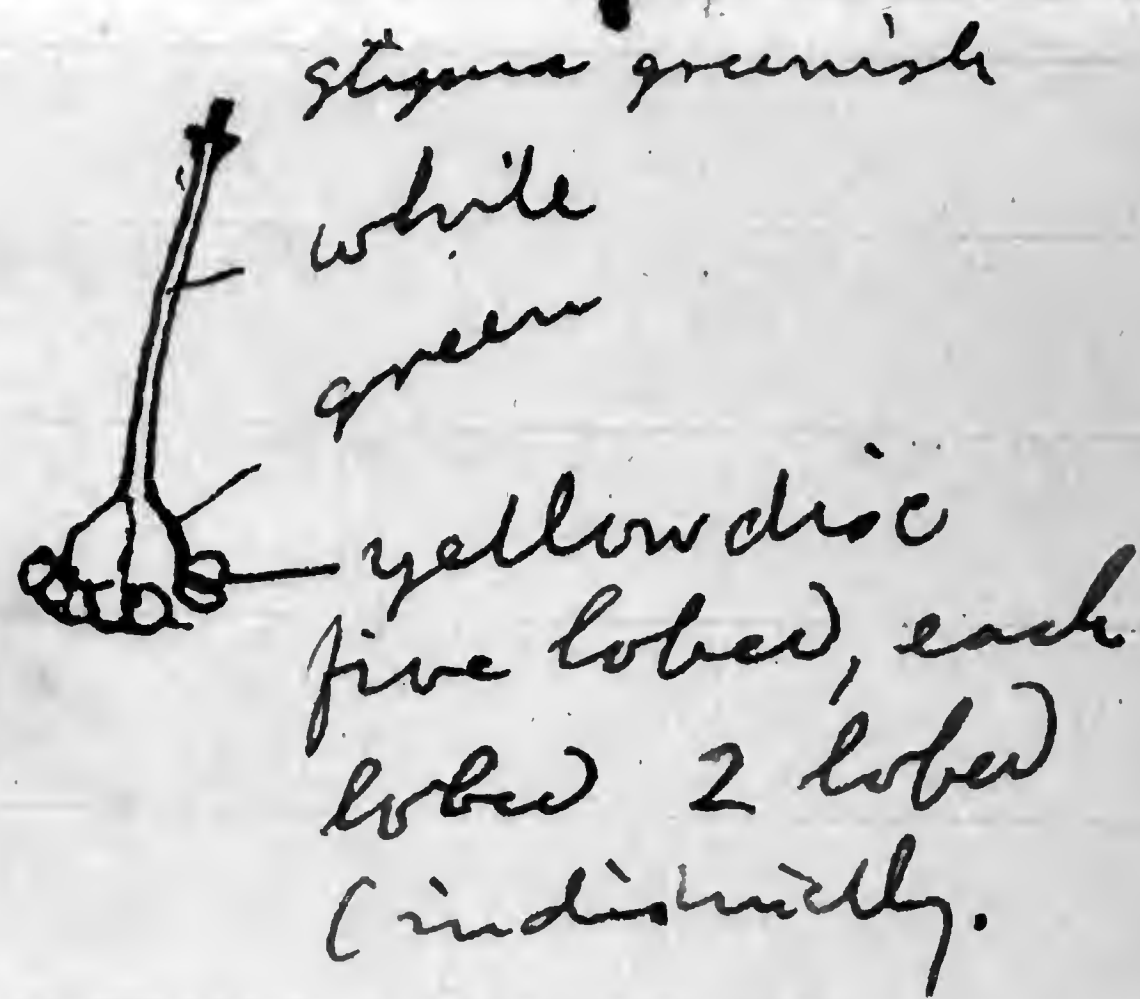 stigma greenish
white
green
yellow disc
five lobed, each
lobed 2 lobed
(indistinctly.